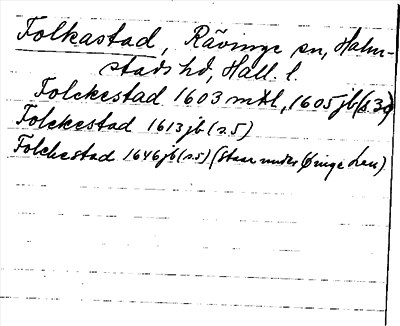 Folkastad, Rävinge sn, Halm-
stads hd, Hall. l.
Folckestad 1603 mtl, 1605 jb (s 39)
Folckestad 1613 jb (s. 5)
Folckestad 1646 jb (s. 5) (Staar under Øringe len)